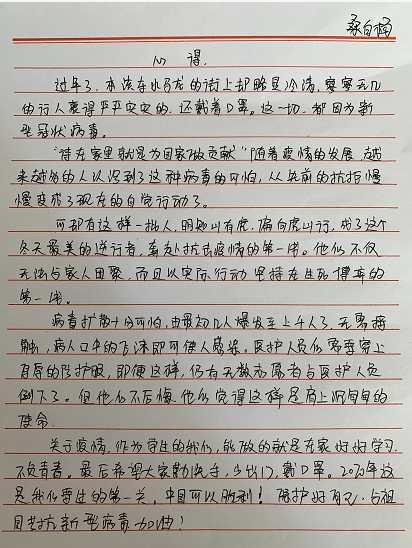 桑白楠
心 得.
过年了.本该车水马龙的街上却略显冷清,寥寥无几
的行人裹得严严实实的.还戴着口罩。这一切.都因为新
型冠状病毒。
"待在家里就是为国家做贡献"随着疫情的发展.越
来越多的人认识到了这种病毒的可怕,从先前的抗拒慢
慢变成了现在的自觉行动了。
可却有这样一批人,明知山有虎.偏向虎山行,成了这个
冬天最美的逆行者,奔赴抗击疫情的第一线。他们不仅
无法与家人团聚,而且以实际行动坚持在生死博弈的
第一线。
病毒扩散十分可怕,由最初几人爆发至上千人了.无需接
触,病人口中的飞沫即可使人感染。医护人员们需要穿上
厚厚的防护服,即使这样,仍有无数志愿者与医护人员
倒下了。但他们不后悔.他们觉得这样是肩上沉甸甸的
使命.
关于疫情,作为学生的我们,能做的就是在家好好学习.
不负青春。最后希望大家勤洗手,少出门,戴口罩。2020年这
是我们学生的第一关,中国可以胜利!保护好自己.与祖
国对抗新型病毒加油!